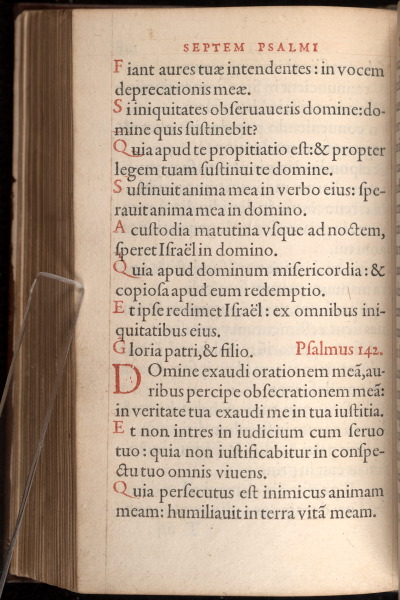 SEPTEM PSALMI
Fiant aures tuæ intendentes : in vocem
deprecationis meæ.
Si iniquitates obſeruaueris domine: do-
mine quis ſuſtinebit?
Quia apud te propitiatio eſt:& propter
legem tuam ſuſtinui te domine.
Suſtinuit anima mea in verbo eius: ſpe-
rauit anima mea in domino.
A cuſtodia matutina vſque ad noctem,
ſperet Iſraël in domino.
Quia apud dominum miſericordia : &
copioſa apud eum redemptio.
Et ipſe redimet Iſraël : ex omnibus ini-
quitatibus eius.
Gloria patri,& filio. Pſalmus 142.
DOmine exaudi orationem meã,au-
ribus percipe obſecrationem meã:
in veritate tua exaudi me in tua iuſtitia.
Et non intres in iudicium cum ſeruo
tuo : quia non iuſtificabitur in conſpe-
ctu tuo omnis viuens.
Quia perſecutus eſt inimicus animam
meam: humiliauit in terra vitã meam.